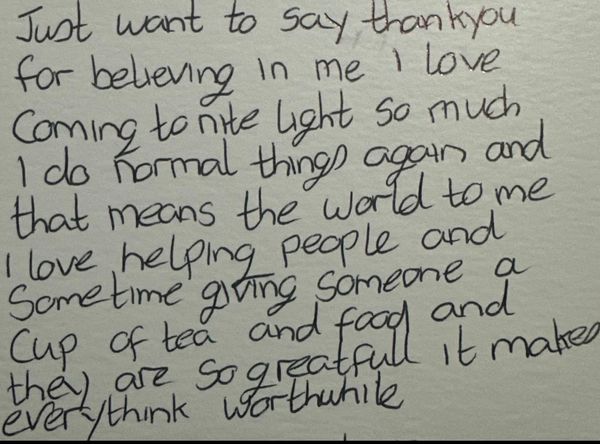 Just want to say thankyou
for believing in me I love
Coming to nite light so much
I do normal things again and
that means the world to me
I love helping people and
Sometime giving someone a
Cup of tea and food and
they are so greatfull it makes
everythink worthwhile